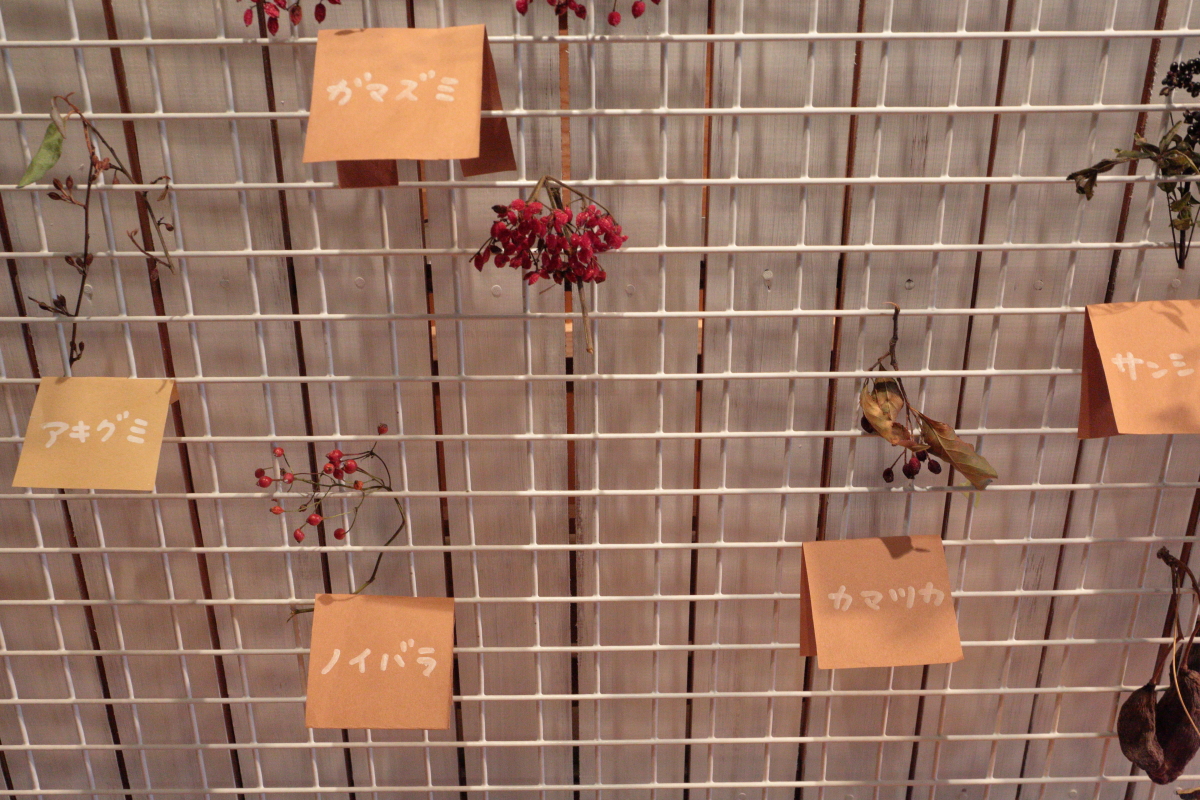 ガマズミ
サンミ
アキグミ
カマツカ
ノイバラ